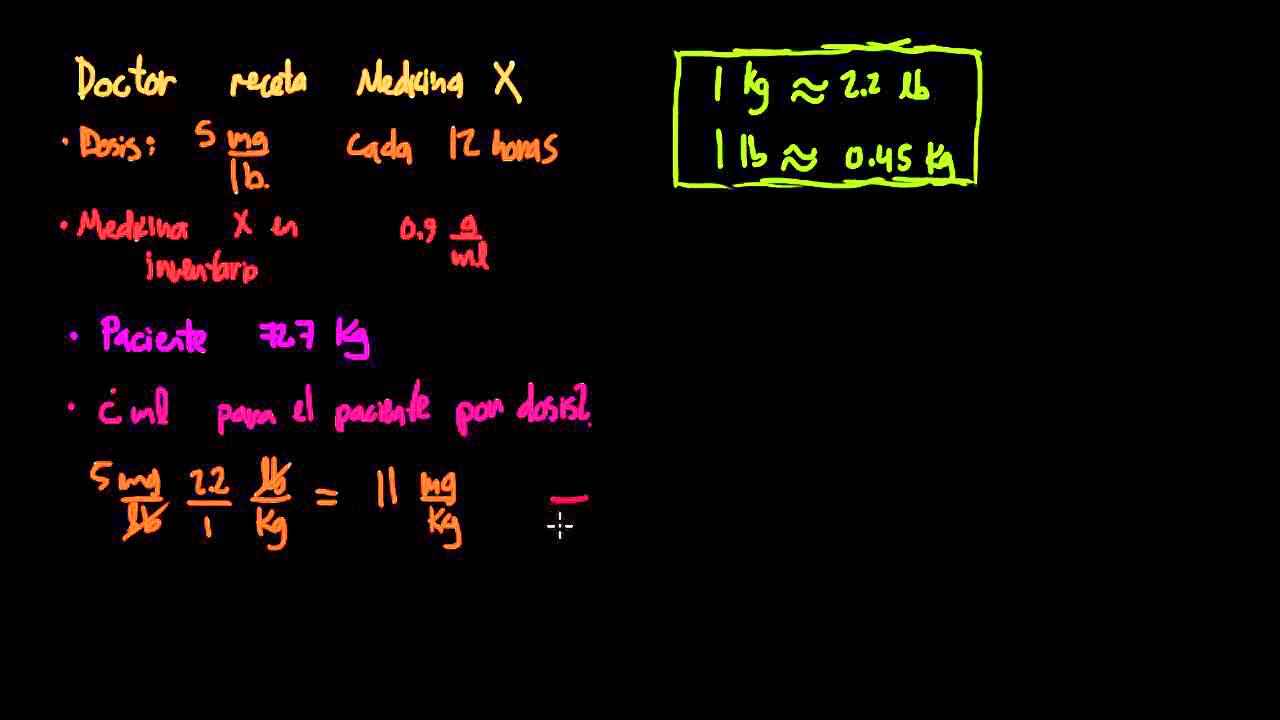 Doctor receta Medicina X
• Dosis: 5 mg/lb. cada 12 horas
• Medicina X en inventario 0.9 g/ml
• Paciente 72.7 Kg
• ¿ ml para el paciente por dosis?
5 mg/lb 2.2/1 lb/kg = 11 mg/Kg
1 kg ≈ 2.2 lb
1 lb ≈ 0.45 Kg